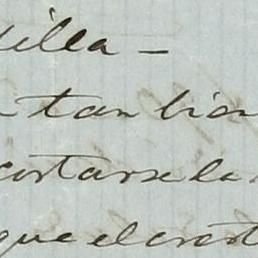 illa –
tan bien
cortarse la
que el crest